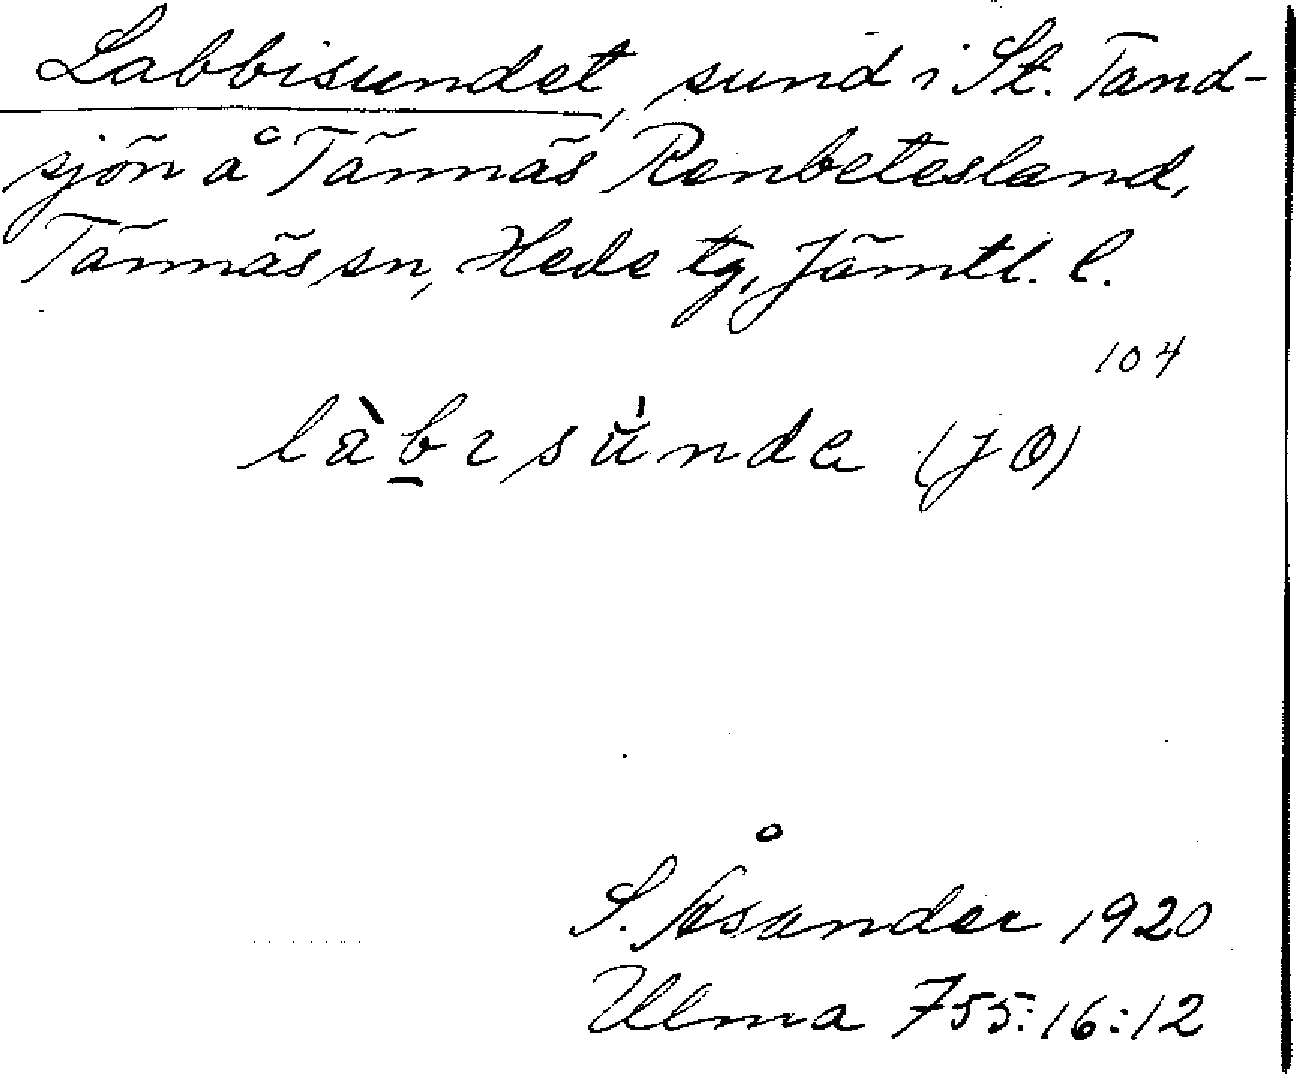 Labbisundet, sund i St. Tand-
sjön å Tännäs Renbetesland,
Tännäs sn, Hede tg, Jämtl. l.
104
làbɪsu̇nda (JO)
S. Åsander 1920
Ulma 755:16:12